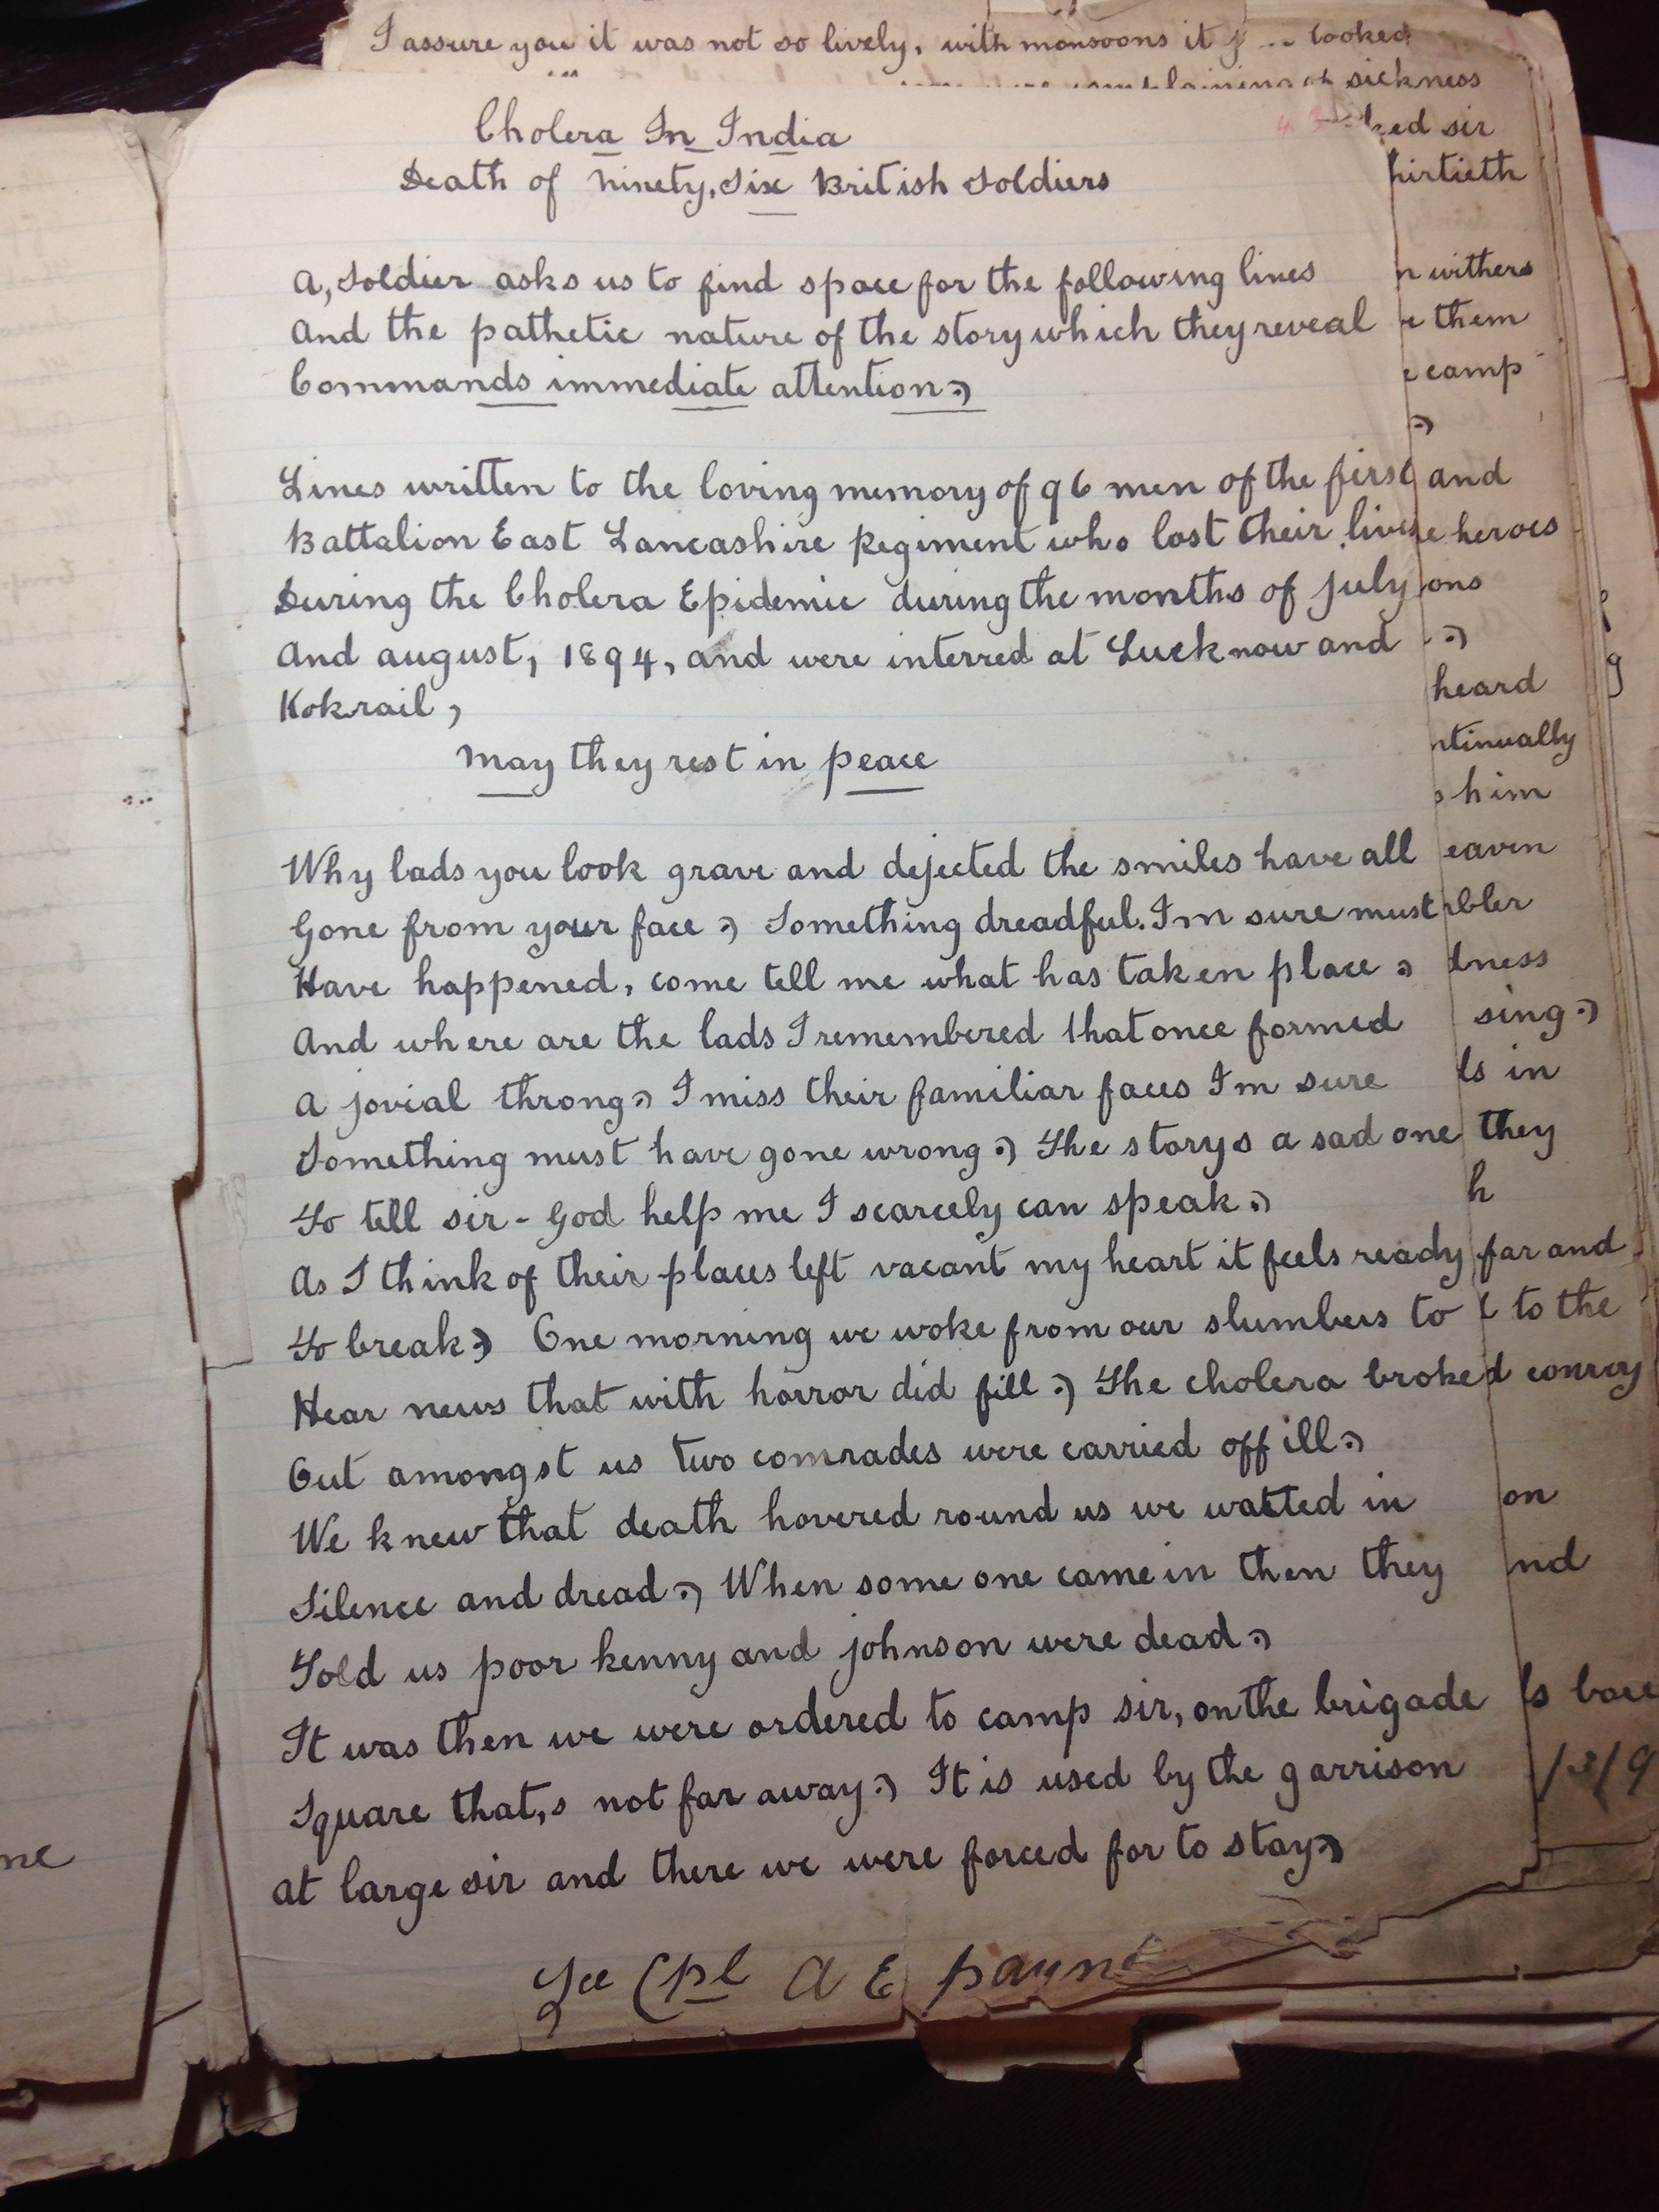 I assure you it was not so lively, with monsoons it looked
complaining of sickness
Cholera In India
Death of Ninety, Six British Soldiers
A, Soldier asks us to find space for the following lines
And the pathetic nature of the story which they reveal
Commands immediate attention.)
Lines written to the loving memory of 96 men of the first
Battalion East Lancashire Regiment who lost their lives
During the Cholera Epidemic during the months of July
And august, 1894, and were interred at Lucknow and
Kokrail,
May they rest in peace
Why lads you look grave and dejected the smiles have all
Gone from your face.) Something dreadful. I'm sure must
Have happened, come tell me what has taken place.)
And where are the lads I remembered that once formed
A jovial throng.) I miss their familiar faces I'm sure
Something must have gone wrong.) The storys a sad one
To tell sir - God help me I scarcely can speak.)
As I think of their places left vacant my heart it feels ready
To break.) One morning we woke from our slumbers to
Hear news that with horror did fill.) The cholera broke
Out amongst us two comrades were carried off ill.)
We knew that death hovered round us we waited in
Silence and dread.) When some one came in then they
Told us poor kenny and johnson were dead.)
It was then we were ordered to camp sir, on the brigade
Square that,s not far away.) It is used by the garrison
at large sir and there we were forced for to stay.)
Lce Cpl A E payne
ked sir
hirtieth
n withers
e them
e camp
.)
and
e heroes
ons
.)
heard
ntinually
him
eaven
mbler
dness
sing.)
ls in
they
h
far and
t to the
d convey
on
nd